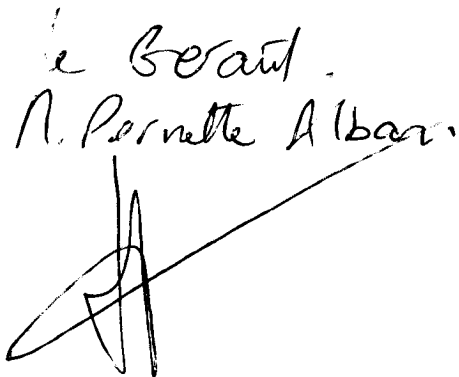 le Gerant.
M. Pernette Alban.